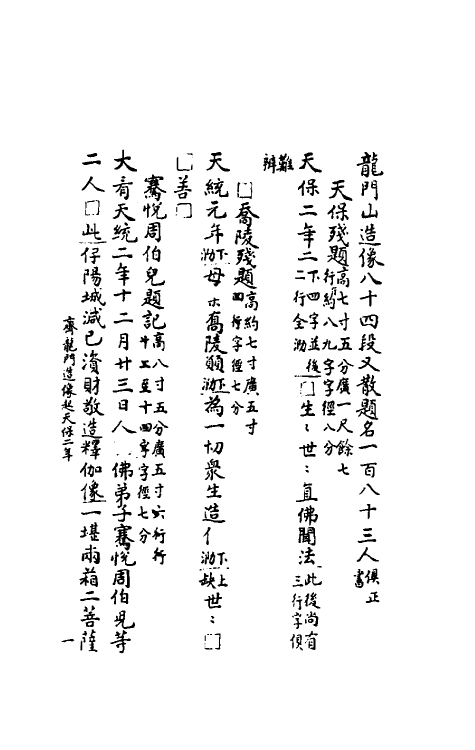 龍門山造像八十四段又散題名一百八十三人俱正書
天保殘題高七寸五分廣一尺餘七行行約八九字字徑八分
天保二年二下四字並後二行全泐□生〻世〻直佛聞法此後尚有三行字俱難辨
□喬陵殘題高約七寸廣五寸四行字徑七分
天統元年下泐母 喬陵願下泐為一切衆生造亻下泐上缺世〻□
□善□
騫悅周伯兒題記高八寸五分廣五寸六行行廿二至十四字字徑七分
大齊天統二年十二月廿三日人 佛弟子騫悅周伯兒等
二人□此仔陽城減已資財敬造釋伽像一堪兩葙二菩薩
齊龍門造像起天保二年
一